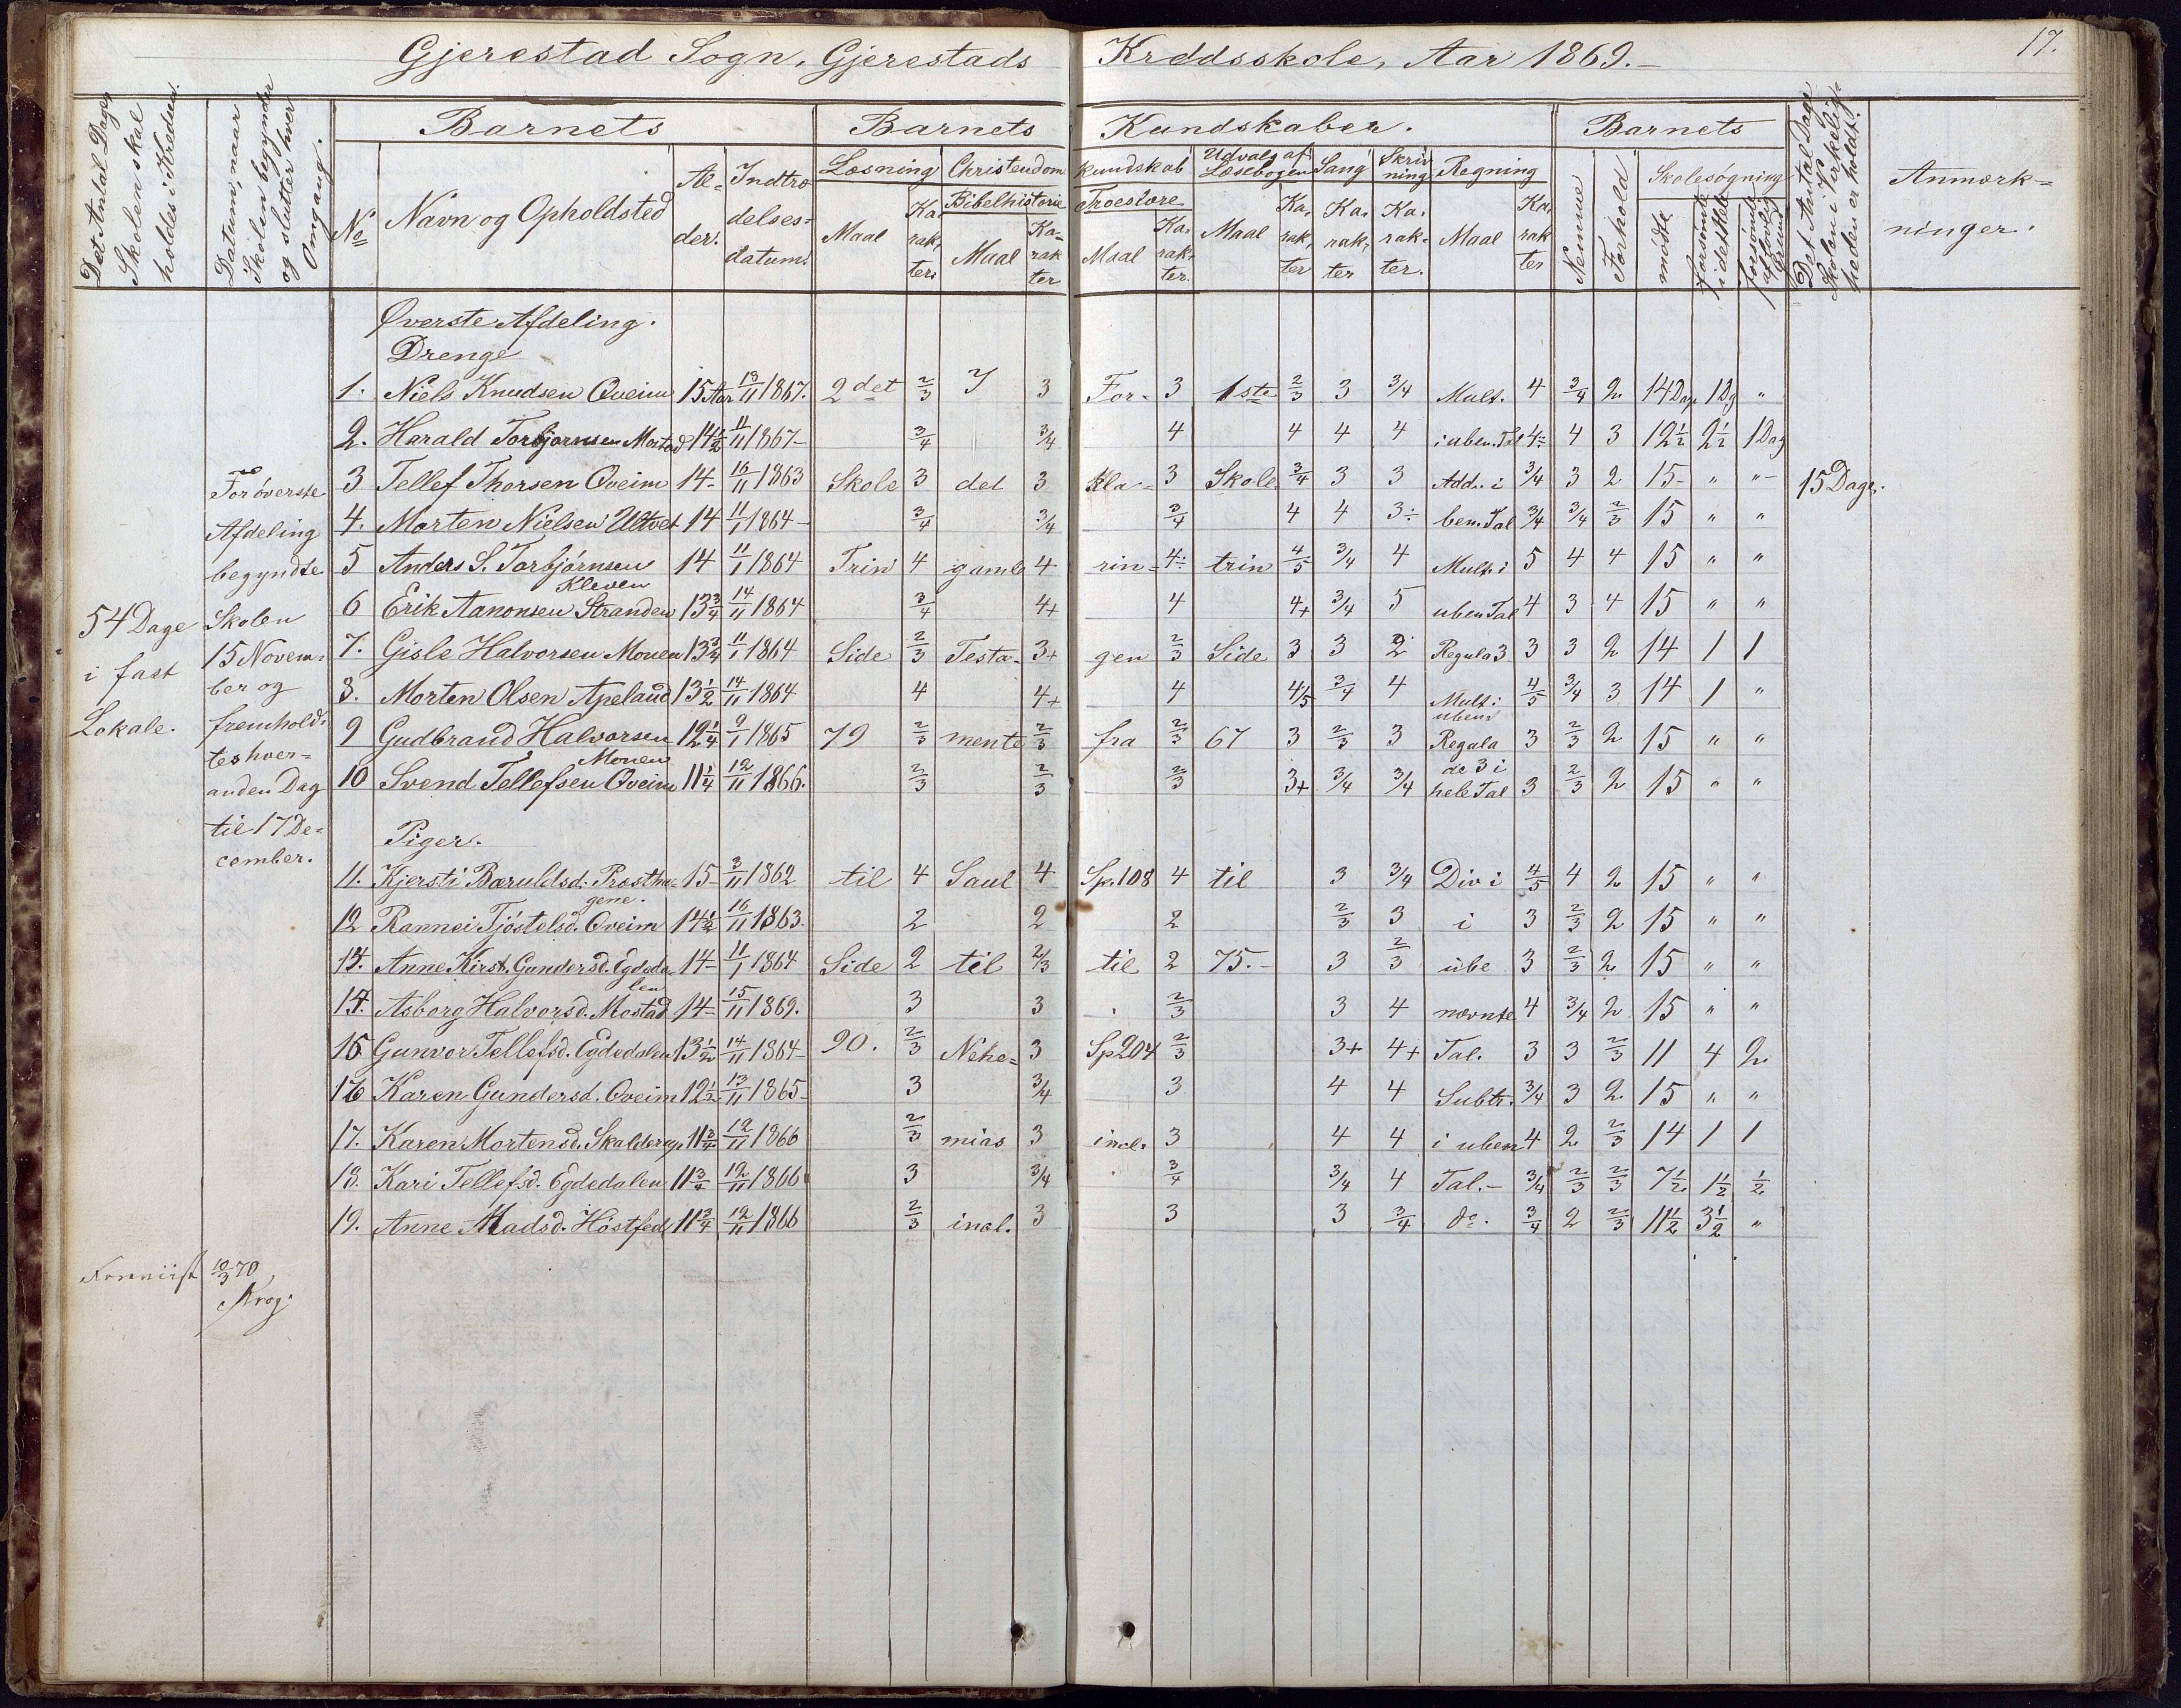 17.
Gjerestad Sogn, Gjerestads Krddsskole, Aar 1869.-
Det Antal Dage Skolen skal holdes i Kredsen.
Datum, naar Skolen begynder og slutter hver Omgang.
Barnets
Barnets Kundskaber.
Barnets
Det Antal Dage Skolen i Virkeligheden er holdt.
Anmærk=
ninger.
No
Navn og Opholdsted
Al=
der.
Indtræ
delses=
datum.
Læsning
Christendom kundskab
Udvalg af Læsebogen
Sang
Skriv
ning
Regning
Bibelhistorie
Troeslære
Maal
Ka.
rak,
ter.
Maal
Ka=
rak
ter
Maal
Ka.
rak.
ter.
Maal
Ka,
rak,
ter
Ka.
rak,
ter
Ka.
rak.
ter.
Maal
Ka,
rak
ter
Nemme
Forhold
Skolesøgning
mødte
forsømte i det Hele
forsømte af lovlig Grund
Øverste Afdeling.
Drenge
1. Niels Knudsen Qveim 15 Aar 13/11 1867. 2det 2/3 I 3 For- 3 1ste 2/3 3 3/4 Mult. 4 3/4 2 14 Dage 1 Dg "
2. Harald Torbjørnsen Mostad 14 1/2 11/11 1867- 3/4 3/4 4 4 4 4 i uben. Tal 4÷ 4 3 12 1/2 2 1/2 1 Dag
3 Tellef Thorsen Qveim 14- 16/11 1863 Skole 3 det 3 kla- 3 Skole 3/4 3 3 Add. i 3/4 3 2 15- " "- 15 Dage.
4. Morten Nielsen Utvet 14 11/1 1864- 3/4 3/4 3/4 4 4 3÷ ben. Tal 3/4 3/4 2/3 15 " "
5 Anders S. Torbjørnsen 14 11/1 1864 Trin 4 gamle 4 rin= 4÷ trin 4/5 3/4 4 Mult. i 5 4 4 15 " "
Kleven
6 Erik Aanonsen Stranden 13 3/4 14/11 1864 3/4 4+ 4 4+ 3/4 5 uben Tal 4 3 4 15 " "
7. Gisle Halvorsen Mouen 13 3/4 11/1 1864 Side 2/3 Testa- 3+ gen 2/3 Side 3 3 2 Regula 3 3 3 2 14 1 1
8. Morten Olsen Apeland 13 1/2 14/11 1864 4 4+ 4 4/5 3/4 4 Mult i 4/5 3/4 3 14 1 "
uben
9 Gudbrand Halvorsen 12 1/4 9/1 1865 79 2/3 mente 2/3 fra 2/3 67 3 2/3 3 Regula 3 2/3 2 15 " "
Mouen
de 3 i
10 Svend Tellefsen Qveim 11 1/4 12/11 1866. 2/3 2/3 2/3 3+ 3/4 3/4 hele Tal 3 2/3 2 15 " "
Piger.
11. Kjersti Baruldsd: Prestha= 15- 3/11 1862 til 4 Saul 4 Sp. 108 4 til 3 3/4 Div i 4/5 4 2 15 " "
gene.
12 Rannei Tjøstelsd. Qveim 14 1/2 16/11 1863. 2 2 2 2/3 3 i 3 2/3 2 15 " "
13. Anne Kirst. Gundersd. Egdeda 14- 11/1 1864 Side 2 til 2/3 til 2 75.- 3 2/3 ube 3 2/3 2 15 " "
len
14. Asborg Halvorsd. Mostad 14- 15/11 1869. 3 3 2/3 3 4 nævnte 4 3/4 2 15 " "
15 Gunvor Tellefsd. Egdedalen 13 1/2 14/11 1864- 90. 2/3 Nehe= 3 Sp 204 2/3 3+ 4+ Tal. 3 3 2/3 11 4 2
16 Karen Gundersd. Qveim 12 1/2 13/11 1865- 3 3/4 3 4 4 Subtr. 3/4 3 2 15 " "
17. Karen Mortensd. Skalderup 11 3/4 12/11 1866 2/3 mias 3 incl. 3 4 4 i uben 4 2 2/3 14 1 1
18. Kari Tellefsd. Egdedalen 11 3/4 12/11 1866 3 3/4 3/4 3/4 4 Tal.- 3/4 2/3 2/3 7 1/2 1 1/2 1/2
19. Anne Madsd. Høstfed 11 3/4 12/11 1866 2/3 incl. 3 3 3 3/4 do. 3/4 2 2/3 11 1/2 3 1/2 "
54 Dage
i fast
Lokale.
For øverste
Afdeling
begyndte
Skolen
15 Novem=
ber og
fremhold=
tes hver=
anden Dag
til 17 De=
cember.
Foreviist 10/3 70,
Krog.